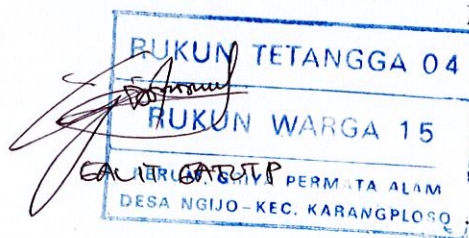 RUKUN TETANGGA 04
RUKUN WARGA 15
PERUM. GRIYA PERMATA ALAM
DESA NGIJO-KEC. KARANGPLOSO.